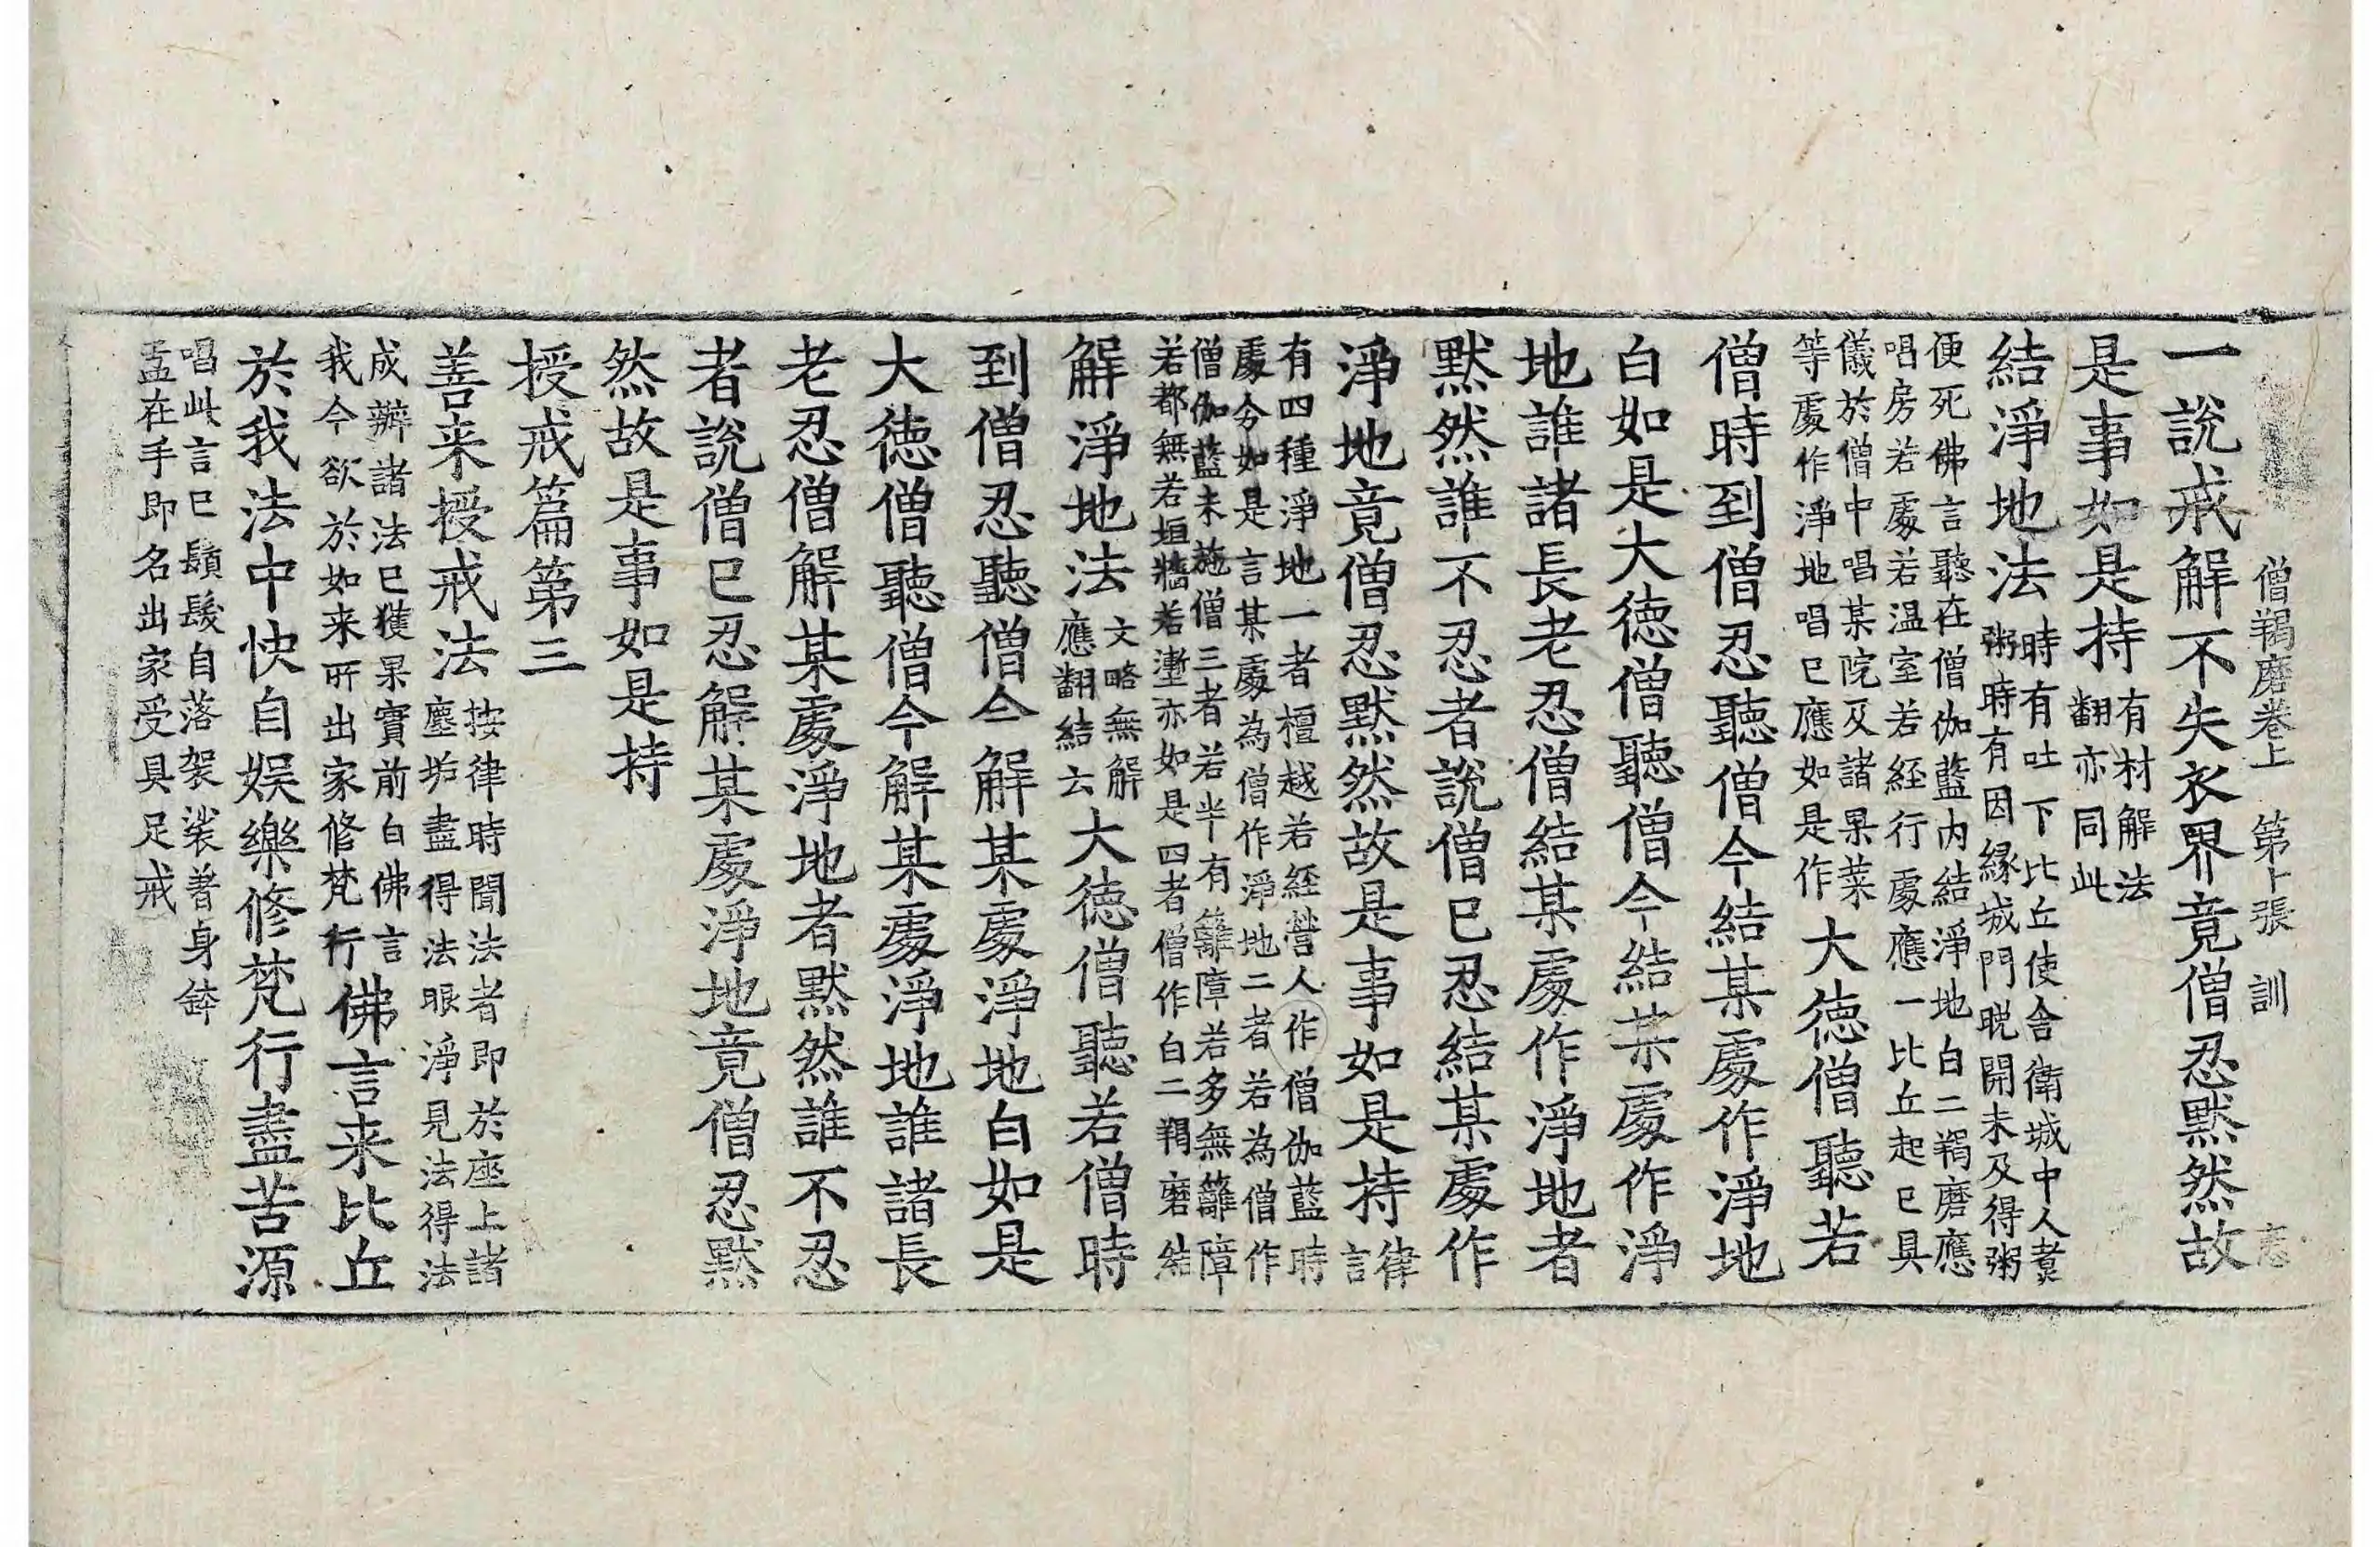 僧羯磨卷上 第卜張 訓
一說戒解不失衣界竟僧忍默然故
是事如是持有材解法
翻亦同此
結淨地法時有吐下比丘使舍衛城中人煑
粥時有因緣城門晚開未及得粥
便死佛言聽在僧伽藍內結淨地白二羯磨應
唱房若處若温室若經行處應一比丘起已具
儀於僧中唱某院及諸果菜
等處作淨地唱已應如是作大德僧聽若
僧時到僧忍聽僧今結某處作淨地
白如是大德僧聽僧今結某處作淨
地誰諸長老忍僧結某處作淨地者
默然誰不忍者說僧已忍結某處作
淨地竟僧忍默然故是事如是持律
言
有四種淨地一者檀越若經營人作僧伽藍時
處分如是言某處為僧作淨地二者若為僧作
僧伽藍未施僧三者若半有籬障若多無籬障
若都無若垣牆若壍亦如是四者僧作白二羯磨結
解淨地法文略無解
應翻結云大德僧聽若僧時
到僧忍聽僧今解某處淨地白如是
大德僧聽僧今解某處淨地誰諸長
老忍僧解某處淨地者默然誰不忍
者說僧已忍解某處淨地竟僧忍默
然故是事如是持
授戒篇第三
善来授戒法按律時聞法者即於座上諸
塵垢盡得法眼淨見法得法
成辦諸法已獲果實前白佛言
我今欲於如来所出家修梵行佛言来比丘
於我法中快自娛樂修梵行盡苦源
唱此言已鬚髮自落袈裟著身鉢
盂在手即名出家受具足戒